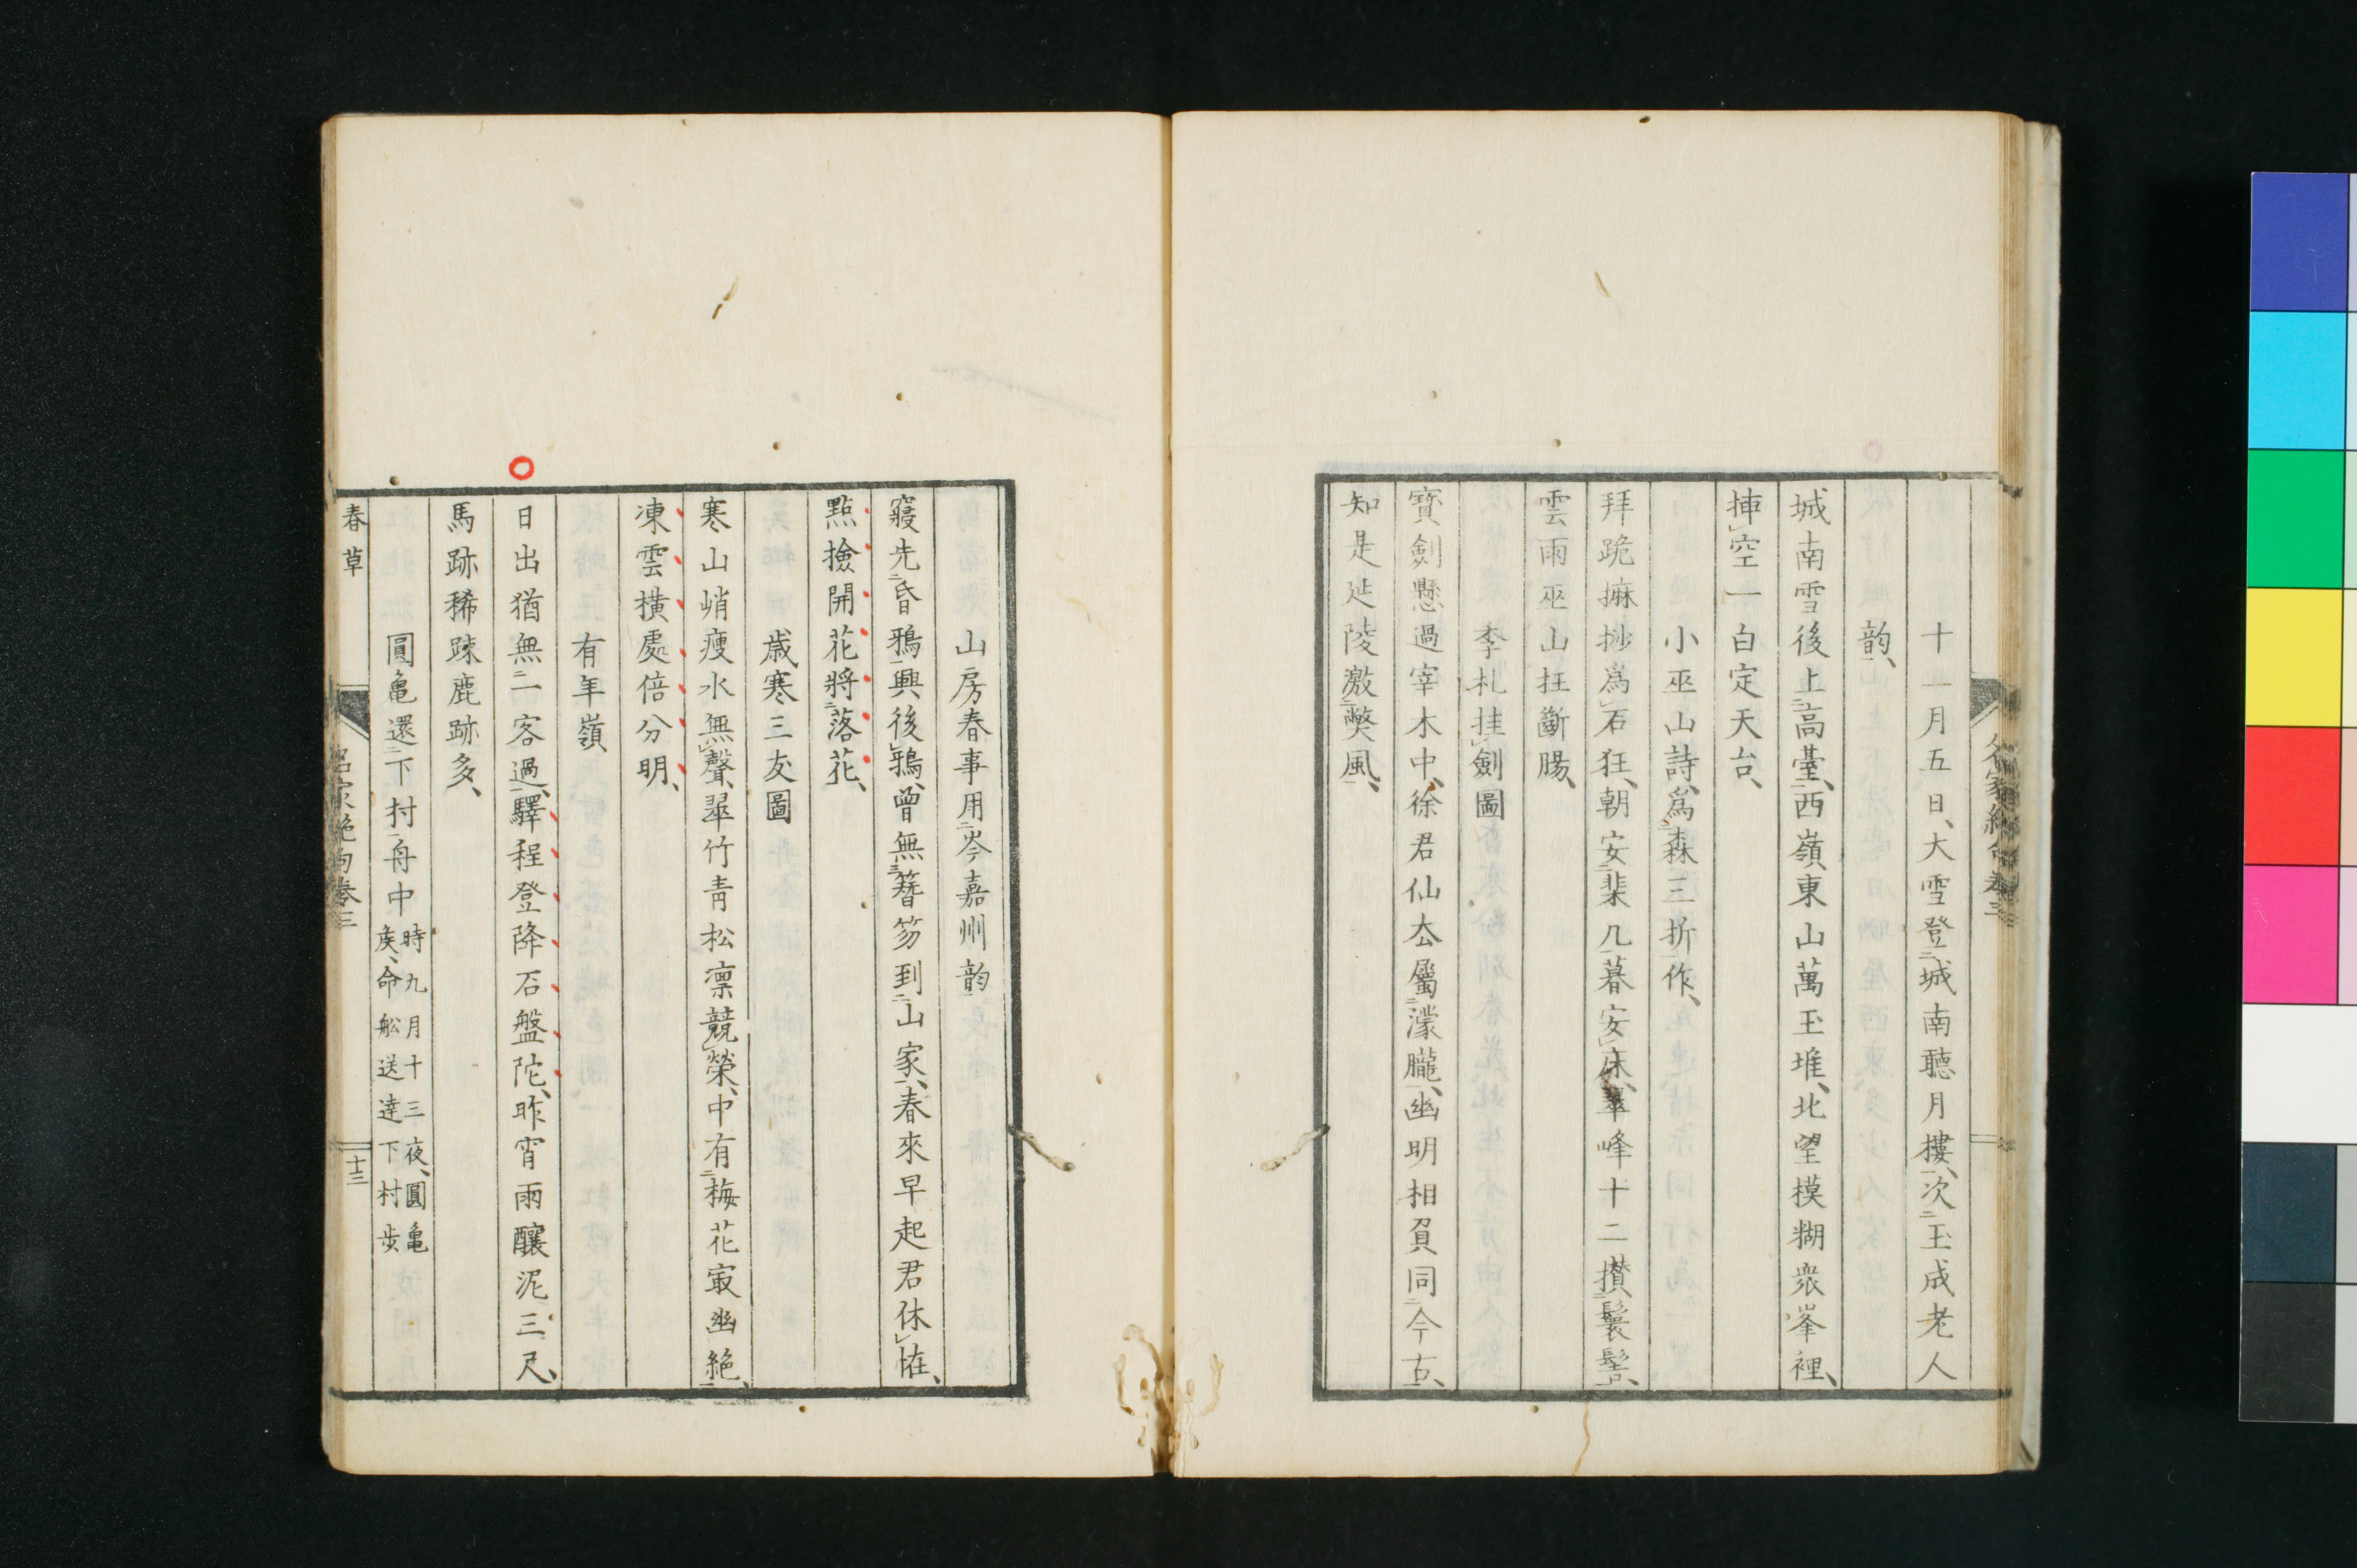 十一月五日、大雪登城南聽月樓、次玉成老人
韵、
城南雪後上高臺、西嶺東山萬玉堆、北望模糊衆峯裡、
挿空一白定天台、
小巫山詩、爲森三折作、
拜跪摩挱爲石狂、朝安棐几暮安床、翠峰十二攅鬟髻、
雲雨巫山枉斷腸、
季札挂劍圖
寳劍懸過宰木中、徐君仙厺屬濛朧、幽明相負同今古、
知是延陵激獘風、
名家絶句卷三
山房春事用岑嘉州韵
寢先昏鴉興後鴉、曾無簪笏到山家、春來早起君休恠、
點撿開花將落花、
歳寒三友圖
寒山峭痩水無聲、翠竹青松凛競榮、中有梅花㝡幽絶、
凍雲橫處倍分明、
有年嶺
日出猶無一客過、驛程登降石盤陀、昨宵雨釀泥三尺、
馬跡稀踈鹿跡多、
圓亀還下村舟中 時九月十三夜、圓亀
矦、命舩送達下村歩
春草
名家絶句卷三
十三